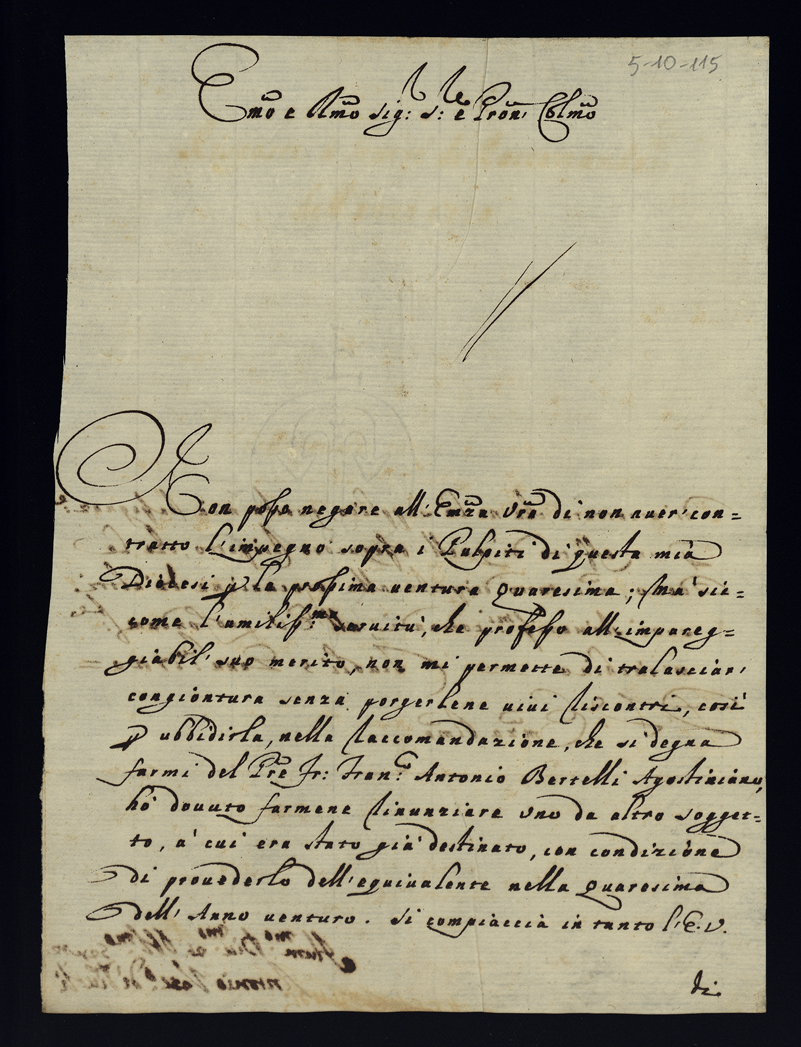 5-10-115
Emo e Rmo sig.r s.r e Pron Colmo
Non posso negare all'Emza Vra di non auer con=
tratto l'impegno sopra i Pulpiti di questa mia
Diocesi p la prossima uentura Quaresima; Mà sic=
come l'umiliss.ma seruitù, che professo all'impareg=
giabil suo merito, non mi permette di tralasciar
congiontura senza porgerlene uiui riscontri, così
p ubbidirla, nella raccomandazione, che si degna
farmi del Pre Fr: Fran.co Antonio Bertelli Agostiniano,
hò douuto farmene rinunziare uno da altro sogget=
to, à cui era stato già destinato, con condizione
di prouederlo dell'equiualente nella Quaresima
dell'Anno uenturo. Si compiaccia in tanto l'E.V.
di